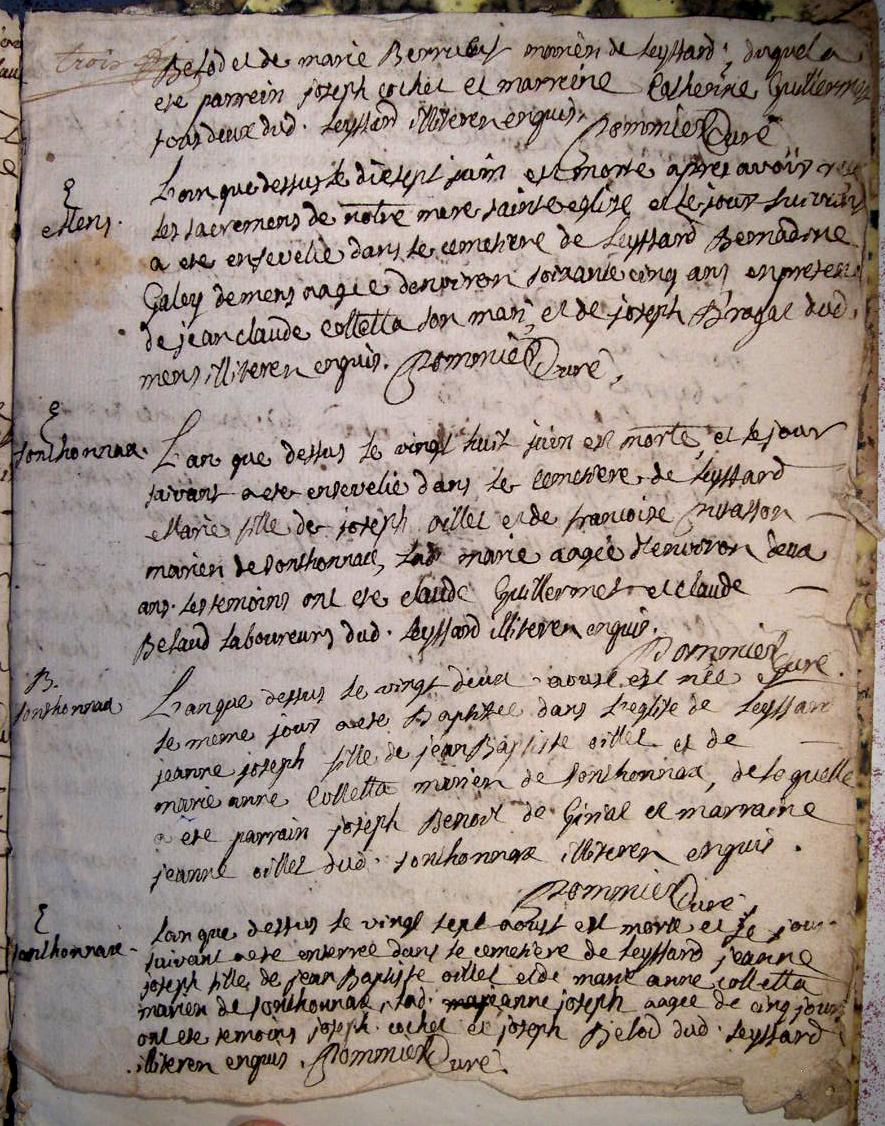 trois
Belod et de marie Berruet mariën de Leyssard, duquel a
ete parrein joseph cochet et marreine Catherine Guillermet
tous deux dud. Leyssard illiteren enquis. Pommier Curé
E
Mens.
L'an que dessus le disept juin est morte apres avoir reçu
les sacremens de notre mere sainte eglise et le jour suivant
a ete ensevelie dans le cemetiere de Leyssard Bernadine
Galey de mens aagée denviron soixante cinq ans, en presence
de jean claude Colletta son mari, et de joseph Bragat dud.
mens, illiteren enquis. Pommier Curé,
E
Sonthonnax.
L'an que dessus le vingt huit juin est morte, et le jour
suivant a ete ensevelie dans le Cemetiere de Leyssard
Marie fille de joseph oillet et de francoise
marien de Sonthonnax, lad. marie aagée d'environ deux
ans. les temoins ont ete claude Guillermet et claude
Belaud laboureurs dud. Leyssard illiteren enquis.
Pommier Curé.
B.
Sonthonnax
L'an que dessus le vingt deux aoust est née et
le meme jour a ete Baptisée dans l'eglise de Leyssard
jeanne joseph fille de jean Baptiste oillet et de
marie anne Colletta marien de Sonthonnax, de laquelle
a ete parrain joseph Benoit de Ginal et marraine
jeanne oillet dud. Sonthonnax illiteren enquis.
Pommier Curé,
E
Sonthonnax.
L'an que dessus le vingt sept aoust est morte et le jour
suivant a ete enterrée dans le cemetiere de Leyssard jeanne
joseph fille de jean Baptiste oillet et de marie anne colletta
marien de Sonthonnax, lad. jeanne joseph aagée de cinq jours
ont ete temoins joseph cochet et joseph Belod dud. Leyssard
illiteren enquis. Pommier Curé